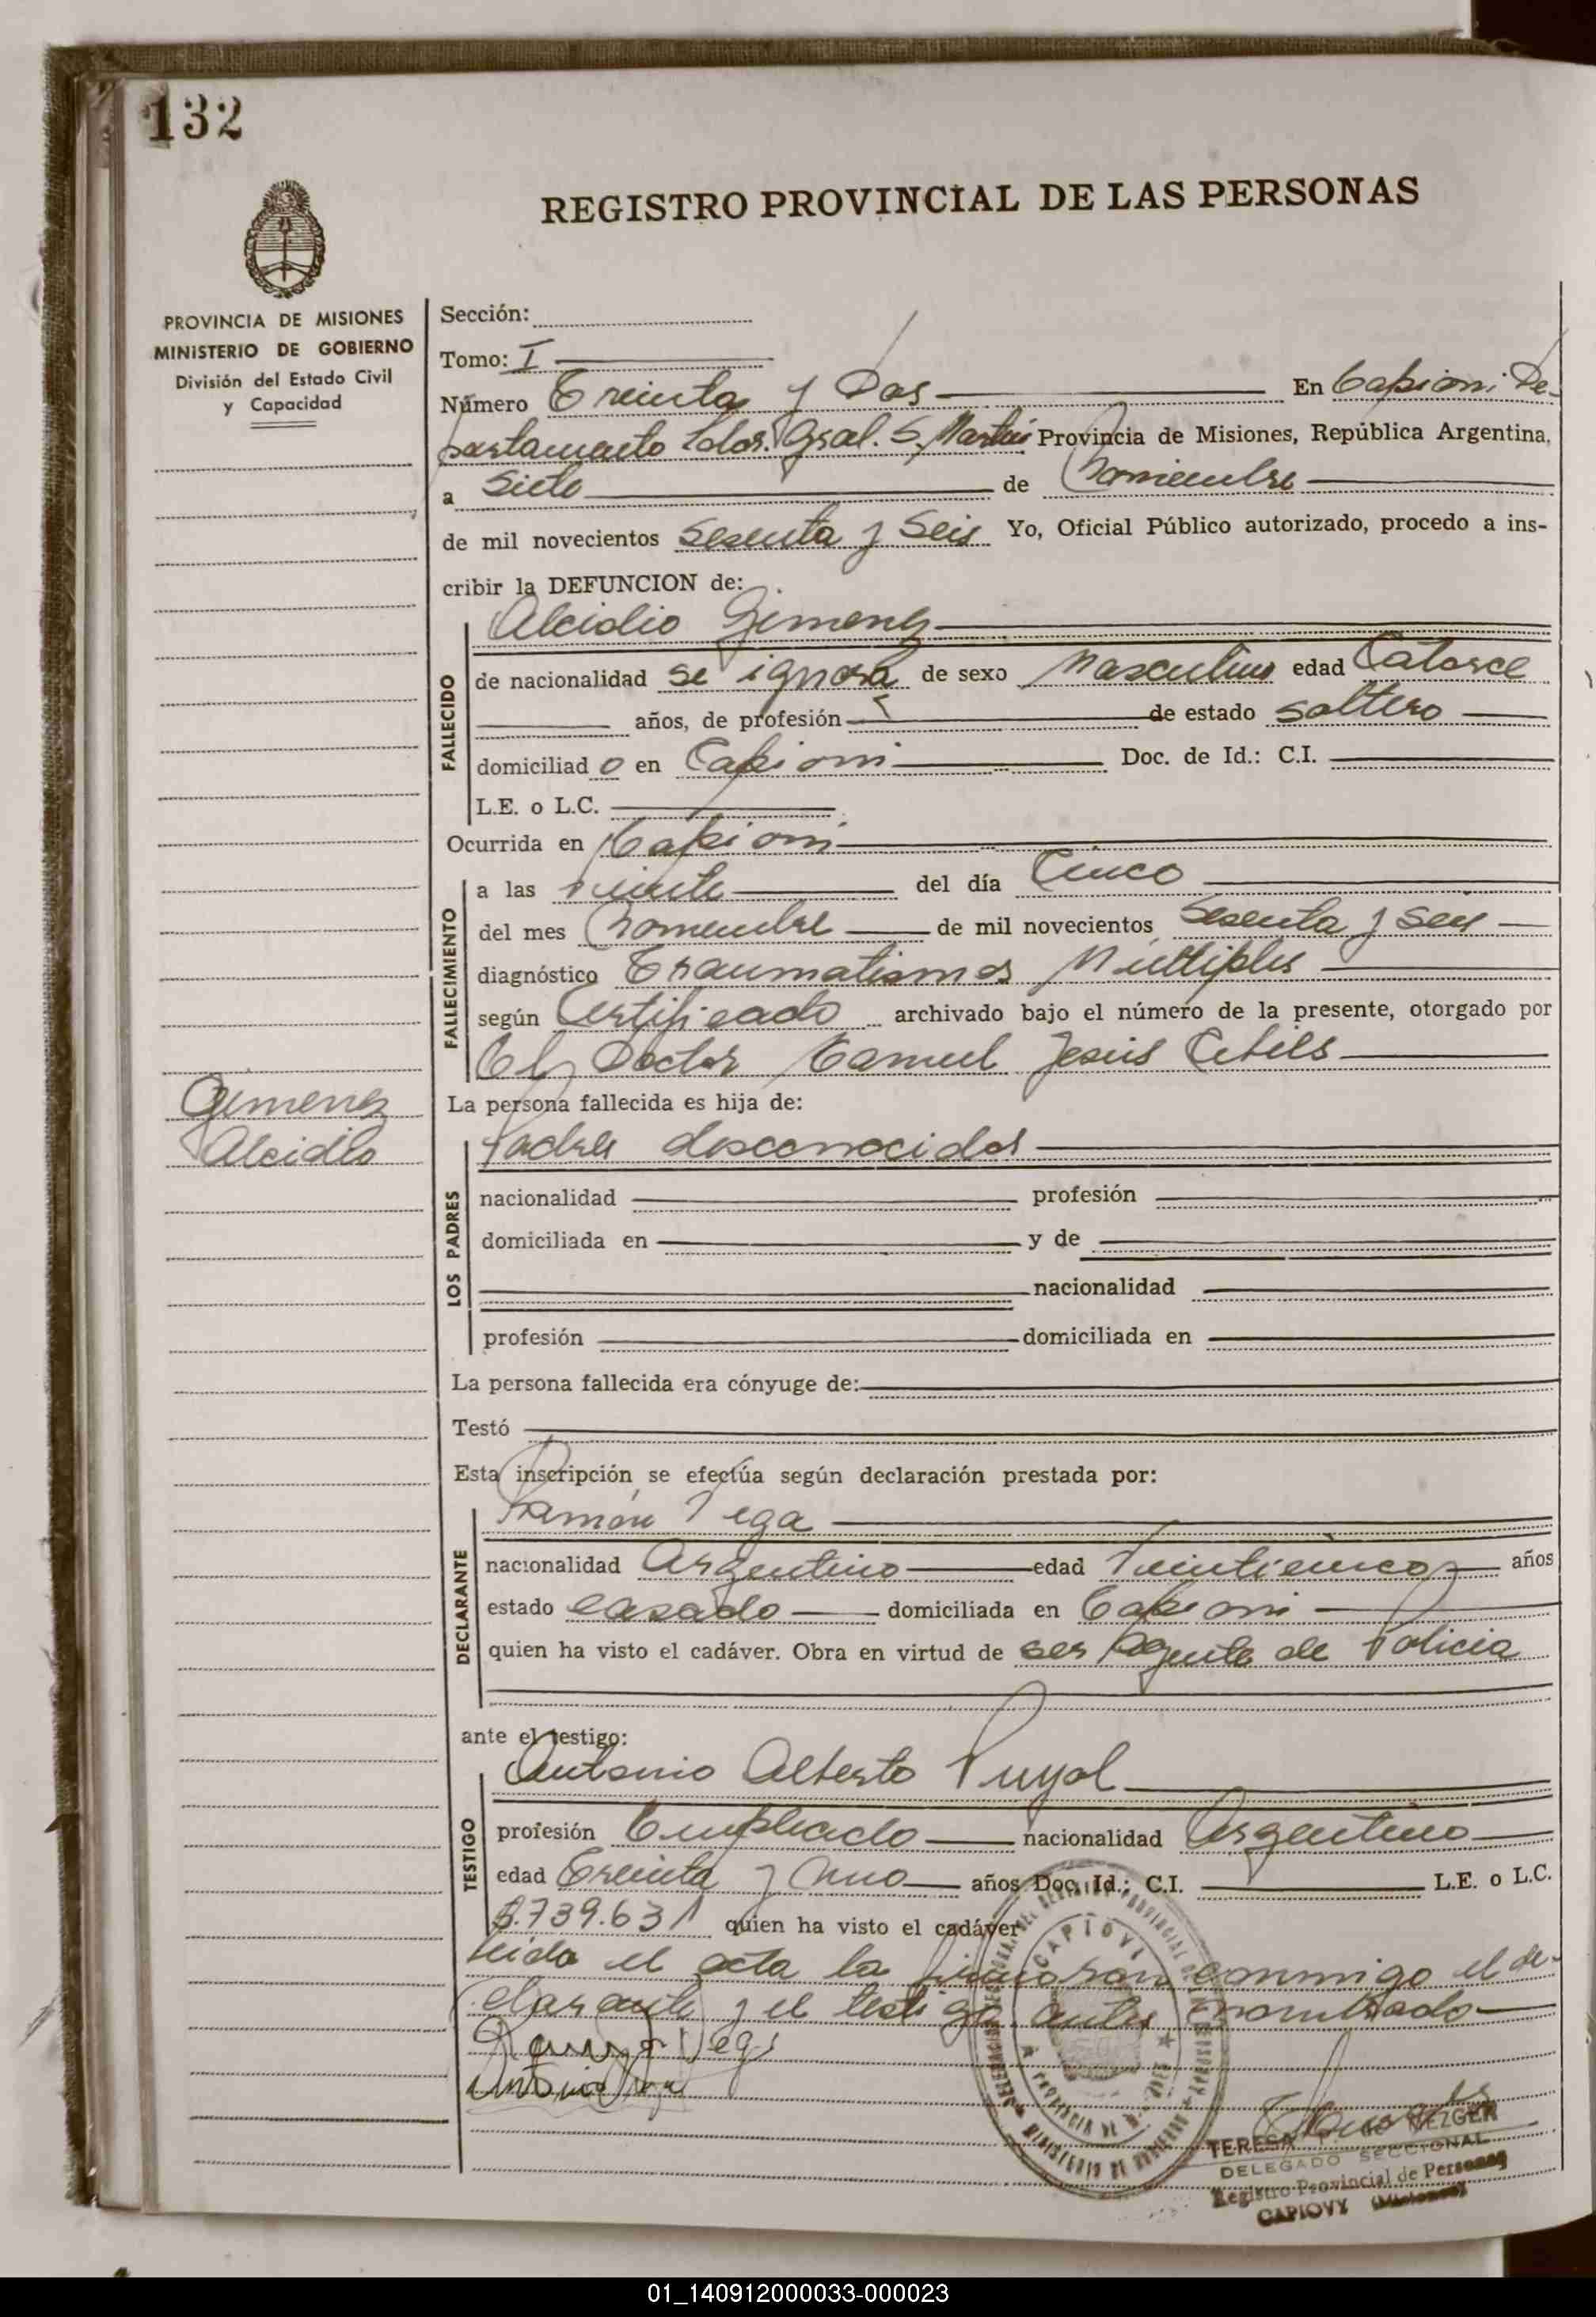 132
REGISTRO PROVINCIAL DE LAS PERSONAS
PROVINCIA DE MISIONES
MINISTERIO DE GOBIERNO
División del Estado Civil
y Capacidad
Sección:
Tomo: I
Número Treinta y Dos En Capiovi De-
partamento Ldor. Gral. S. Martín Provincia de Misiones, República Argentina,
a Siete de Noviembre
de mil novecientos Sesenta y Seis Yo, Oficial Público autorizado, procedo a ins-
cribir la DEFUNCION de:
Alcidio Gimenez
FALLECIDO
de nacionalidad se ignora de sexo Masculino edad Catorce
años, de profesión de estado soltero
domiciliad o en Capiovi Doc. de Id.: C.I.
L.E. o L.C.
Ocurrida en Capiovi
FALLECIMIENTO
a las veinte del día Cinco
del mes Noviembre de mil novecientos Sesenta y Seis
diagnóstico Traumatismos Múltiples
según Certificado archivado bajo el número de la presente, otorgado por
El Doctor Jesús
Gimenez
Alcidio
La persona fallecida es hija de:
LOS PADRES
Padres desconocidos
nacionalidad profesión
domiciliada en y de
nacionalidad
profesión domiciliada en
La persona fallecida era cónyuge de:
Testó
Esta inscripción se efectúa según declaración prestada por:
DECLARANTE
Ramón Vega
nacionalidad Argentino edad Veinticinco años
estado casado domiciliada en Capiovi
quien ha visto el cadáver. Obra en virtud de ser Agente de Policia
ante el testigo:
TESTIGO
Antonio Alberto Puyol
profesión Empleado nacionalidad Argentino
edad Treinta y Uno años Doc. Id.: C.I. L.E. o L.C.
5.739.631 quien ha visto el cadáver
leida el acta la firmaron conmigo el de-
clarante y el testigo antes nombrado
Ramon Vega
CAPIOVI
TERESA DE MEZGER
DELEGADO SECCIONAL
Registro Provincial de Personas
CAPIOVY (Misiones)
01_140912000033-000023